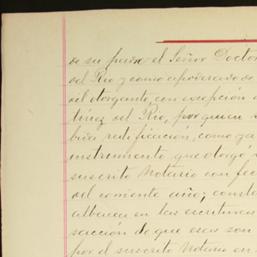 de su padre el Señor Doctor
del Rio y como apoderado de
del otorgante, con excepción
tinez del Rio, por quien
bida ratificación, como
instrumento, que otorgó
suscrito Notario con fec
del corriente año; const
albacea en las escrituras
sacción de que esos son
por el suscrito Notario en